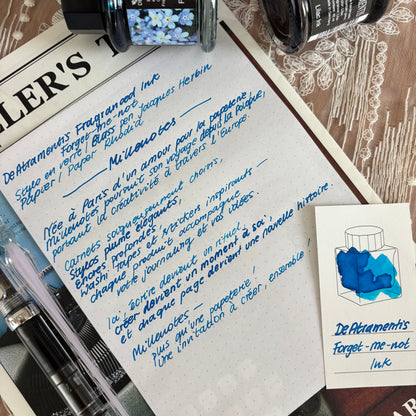 LER'S T
De Atramentis Fragranced Ink
Forget-me-not
Stylo en verre / Glass pen Jacques Herbin
Papier / Paper Rhodia
Millenotes
Née à Paris d'un amour pour la papeterie,
Millenotes poursuit son voyage depuis la Pologne,
portant la créativité à travers l'Europe.
Carnets soigneusement choisis,
Stylos plume élégants,
Encres profondes
Washi tapes et stickers inspirants —
chaque produit accompagne
votre journaling et vos idées.
Ici, écrire devient un rituel,
créer devient un moment à soi,
et chaque page devient une nouvelle histoire.
Millenotes —
plus qu'une papeterie!
Une invitation à créer, ensemble!
De Atramentis
Forget-me-not
Ink